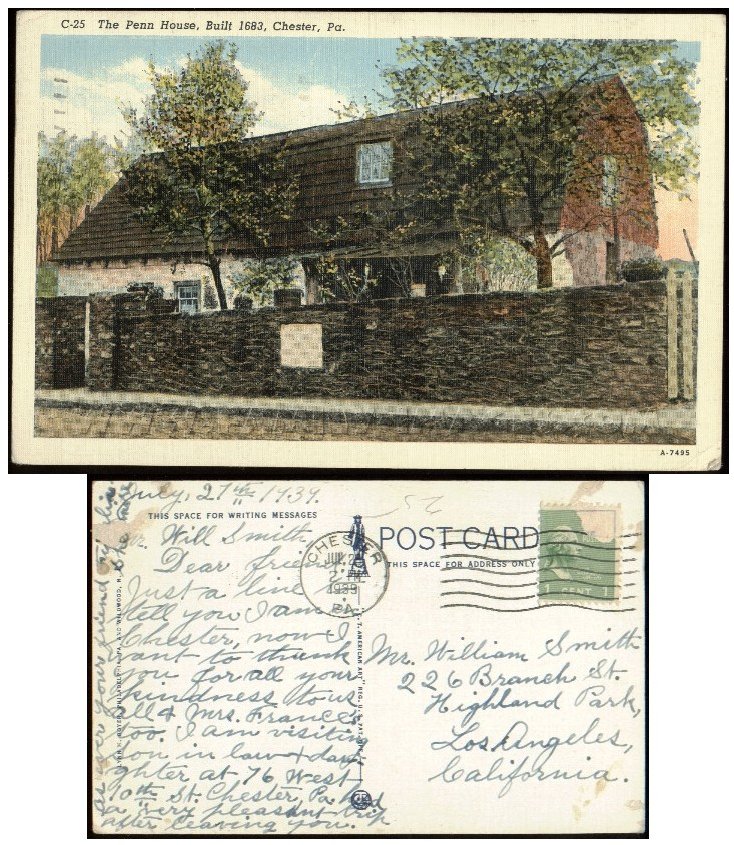 C-25 The Penn House, Built 1683, Chester, Pa.
A-7495
July, 27th 1939.
THIS SPACE FOR WRITING MESSAGES
Mr. Will Smith
Dear friend
Just a line to
tell you I am in
Chester, now I
want to thank
you for all your
kindness to us
all & Mrs. Frances
too. I am visiting
son in law & dau
ghter at 76 West
10th St. Chester, Pa. Had
a very pleasant trip
after leaving you.
as ever your friend
CHESTER
1939
PA.
POST CARD
THIS SPACE FOR ADDRESS ONLY
1 CENT 1
Mr. William Smith
226 Branch St.
Highland Park,
Los Angeles,
California.